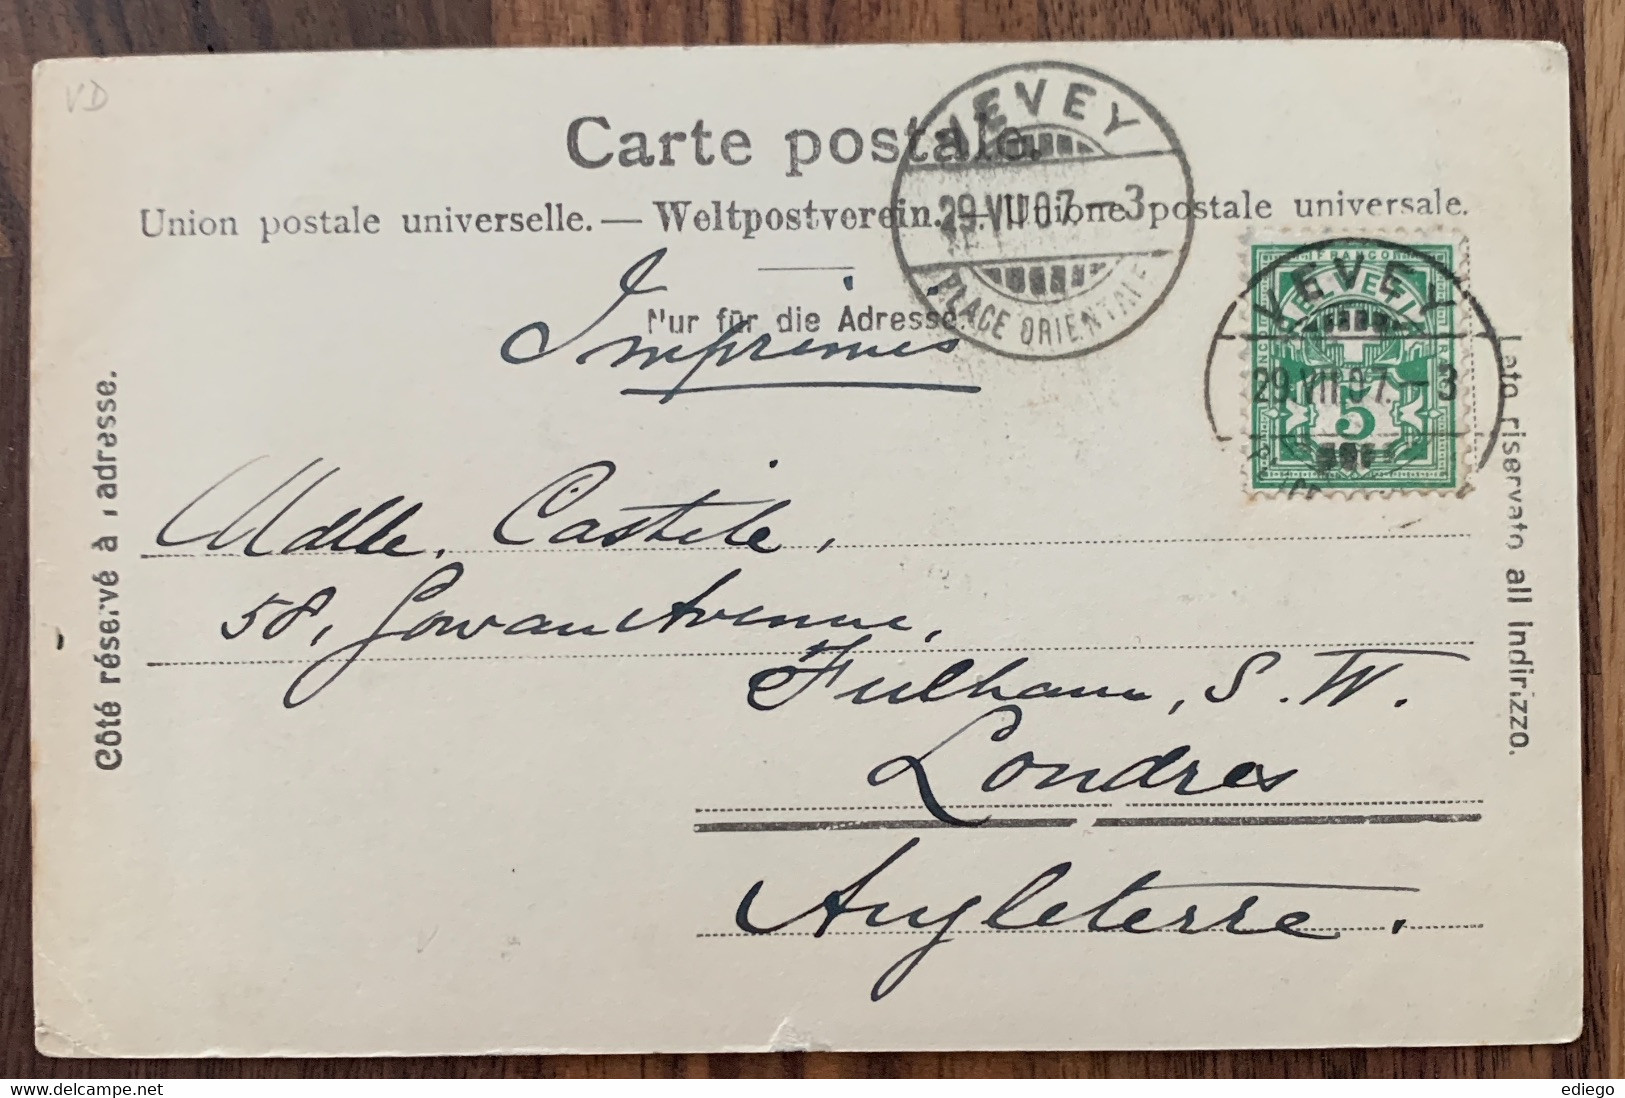 VD
Carte postale.
Union postale universelle. — Weltpostverein. — Unione postale universale.
Nur für die Adresse.
Imprimés
VEVEY
29.VII.07.—3
PLACE ORIENTALE
FRANCO
HELVETIA
5
VEVEY
29.VII.07.—3
Côté réservé à l adresse.
Lato riservato all indirizzo.
Madlle. Castele,
58, Gowan Avenue,
Fulham, S. W.
Londres
Angleterre.
ediego